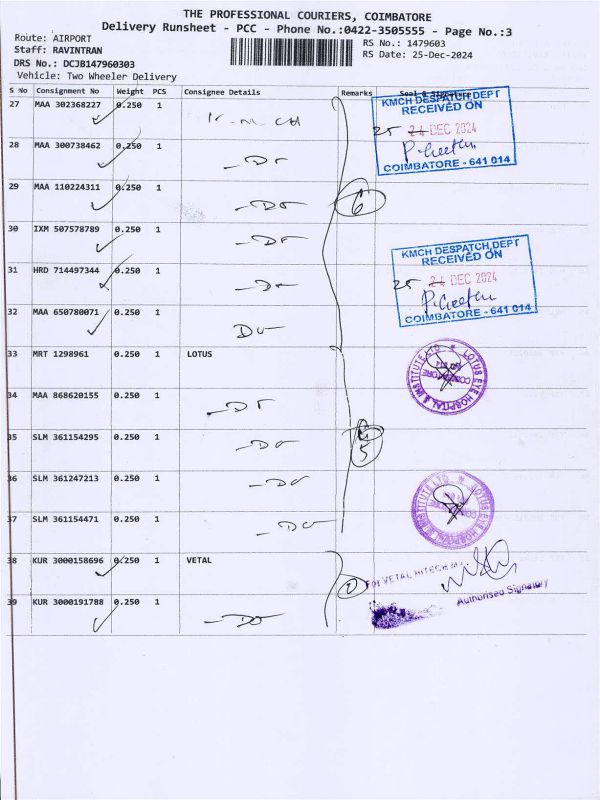 THE PROFESSIONAL COURIERS, COIMBATORE
Delivery Runsheet - PCC - Phone No.:0422-3505555 - Page No.:3
Route: AIRPORT
RS No.: 1479603
Staff: RAVINTRAN
RS Date: 25-Dec-2024
DRS No.: DCJB147960303
Vehicle: Two Wheeler Delivery
S No Consignment No Weight PCS Consignee Details Remarks Seal & Signature
27 MAA 302368227 0.250 1 K.M.CH
28 MAA 300738462 0.250 1 -Do
29 MAA 110224311 0.250 1 -Do
6
30 IXM 507578789 0.250 1 -Do
31 HRD 714497344 0.250 1 -Do
32 MAA 650780071 0.250 1 Do-
33 MRT 1298961 0.250 1 LOTUS
34 MAA 868620155 0.250 1 -Do
35 SLM 361154295 0.250 1 -Do
5
36 SLM 361247213 0.250 1 -Do
37 SLM 361154471 0.250 1 -Do
38 KUR 3000158696 0.250 1 VETAL
39 KUR 3000191788 0.250 1 -Do
KMCH DESPATCH DEPT
RECEIVED ON
25 24 DEC 2024
P. Geetha
COIMBATORE - 641 014
KMCH DESPATCH DEPT
RECEIVED ON
25 24 DEC 2024
P. Geetha
COIMBATORE - 641 014
LOTUS EYE HOSPITAL & INSTITUTE LTD. *
LOTUS EYE HOSPITAL & INSTITUTE LTD. *
For VETAL HITECH
Authorised Signatory